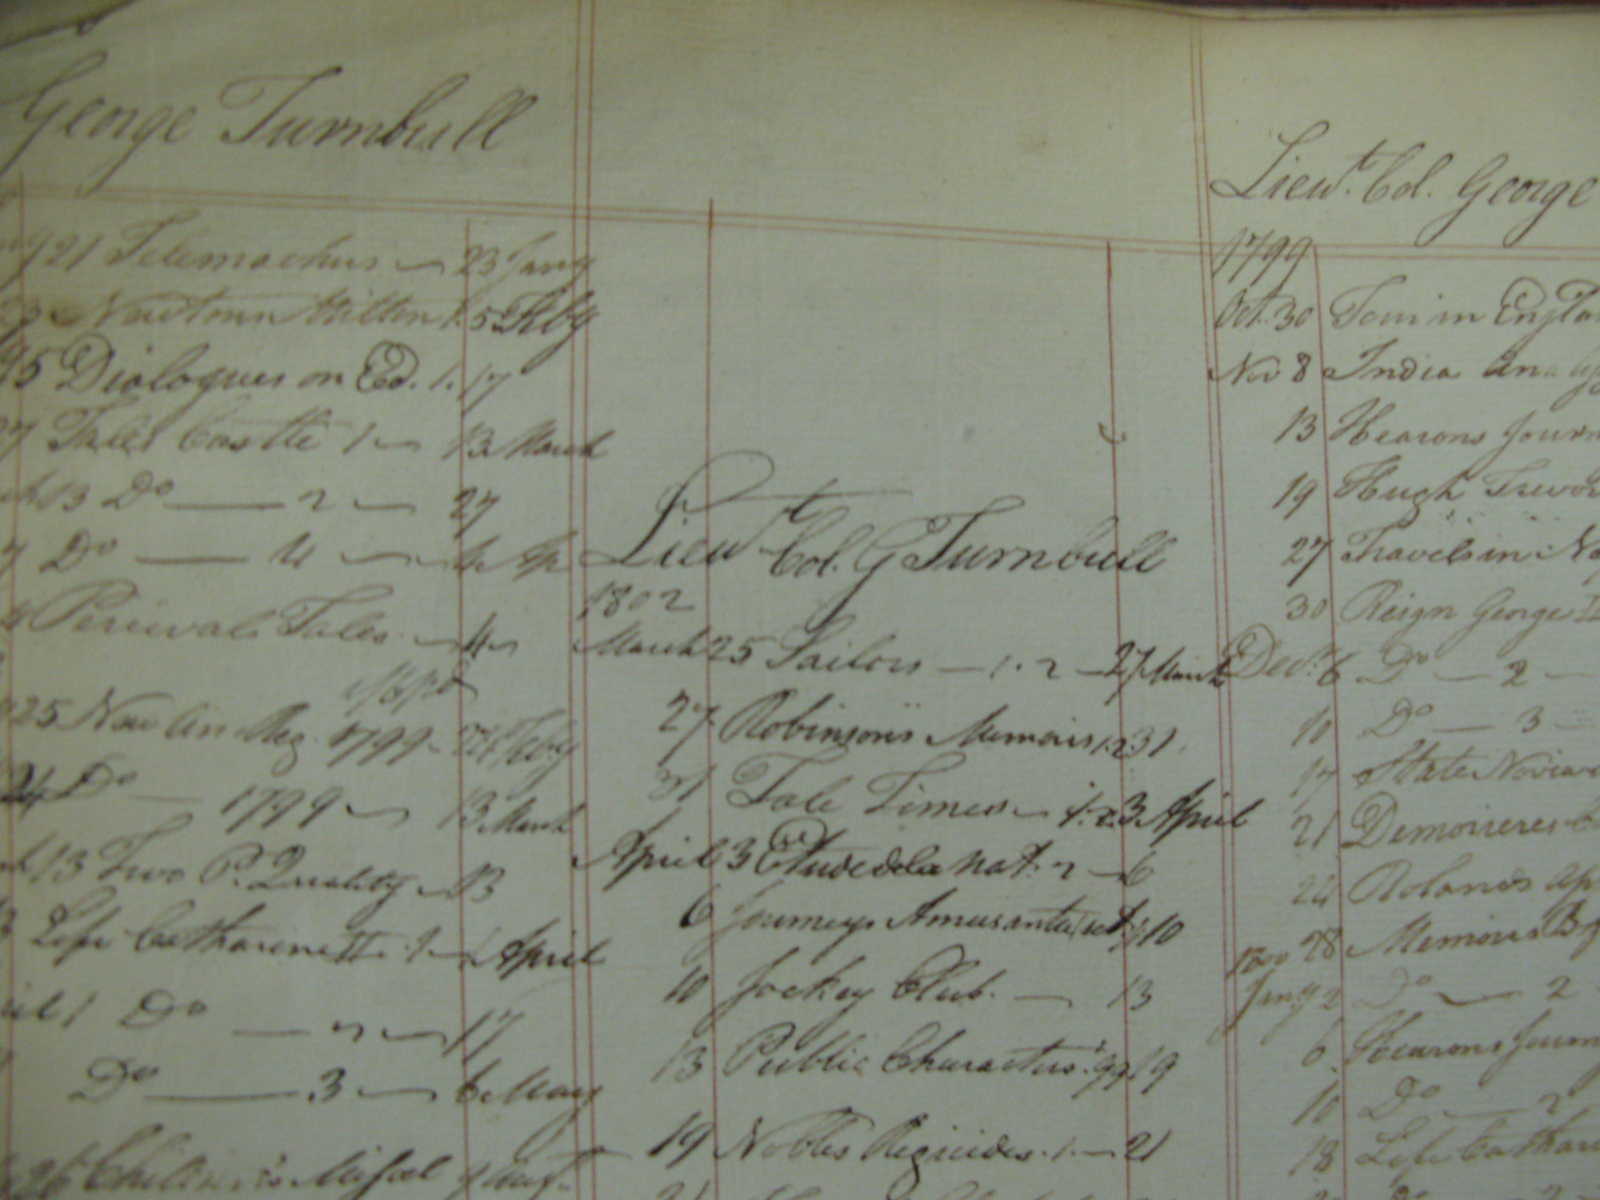 George Turnbull
21 Telemachus — 23 Jany
Newtons Milton 1. 5 Feby
Dialogues on Ed. 1. 17
Tales Castle 1 — 13 March
13 Do — 2 — 27
Do — 4 —
Percivals Tales — 4
25 New An Reg. 1799 - Feby
Do — 1799 — 13 March
13 Two P. Quality — 13
Life Catharine II. 1 — 1 April
1 Do — 2 — 17
Do — 3 — 6 May
26 Missal
Lieut. Col. G Turnbull
1802
March 25 Sailors — 1. 2 — 27 March
27 Robinson's Memoirs 1.2 31.
31 Tale Times — 1. 2. 3 April
April 3 Etude de la Nat. 2 — 6
6 Journeys Amusante 10
10 Jockey Club. — 13
13 Public Characters 99. 19
19 Nobles Regicides. 1. — 21
Lieut. Col. George
1799
Oct. 30 Tour in Engla
Nov 8 India
13 Hearons Journ
19 Hugh Trevor
27 Travels in No
30 Reign George
Decr. 6 Do — 2 —
10 Do — 3 —
17 State
21 Demourieres
24 Rolands Ap
28 Memoirs
1800
Jany 2 Do — 2
6 Hearons Journ
10 Do — 2
18 Life Cathar